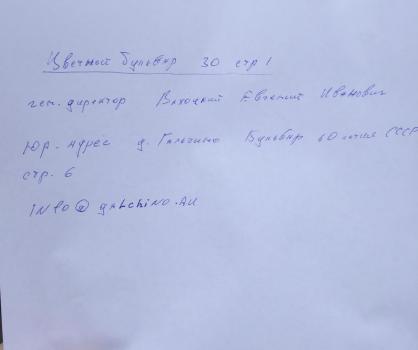 Цветной бульвар 30 стр 1
ген. директор Евгений Иванович
Юр. адрес д. Гальчино Бульвар 60 летия СССР
стр. 6
info@galchino.ru